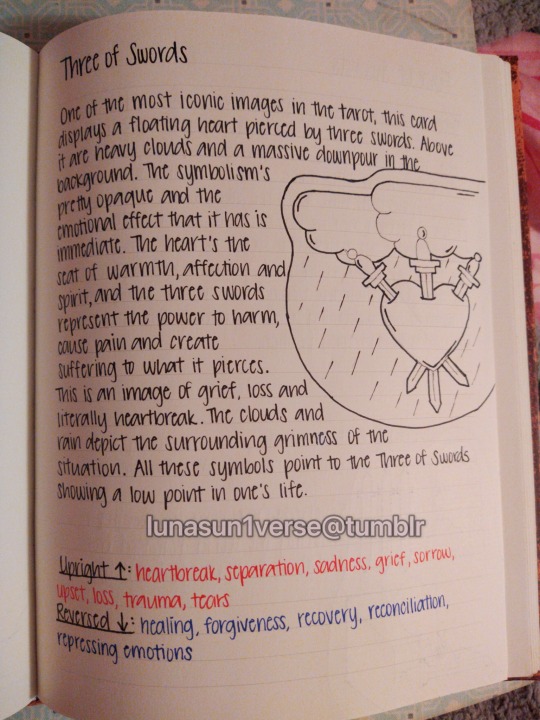 Three of Swords
One of the most iconic images in the tarot, this card
displays a floating heart pierced by three swords. Above
it are heavy clouds and a massive downpour in the
background. The symbolism's
pretty opaque and the
emotional effect that it has is
immediate. The heart's the
seat of warmth, affection and
spirit, and the three swords
represent the power to harm,
cause pain and create
suffering to what it pierces.
This is an image of grief, loss and
literally heartbreak. The clouds and
rain depict the surrounding grimness of the
situation. All these symbols point to the Three of Swords
showing a low point in one's life.
lunasun1verse@tumblr
Upright ↑: heartbreak, separation, sadness, grief, sorrow,
upset, loss, trauma, tears
Reversed ↓: healing, forgiveness, recovery, reconciliation,
repressing emotions